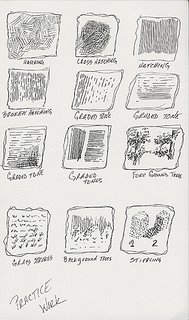 HATCHING
CROSS HATCHING
HATCHING
BROKEN HATCHING
GRADED TONE
GRADED TONE
GRADED TONE
GRADED TONES
FORE GROUND TREES
GRASS STROKES
BACKGROUND TREES
STIPPLING
1 2
PRACTICE
WORK